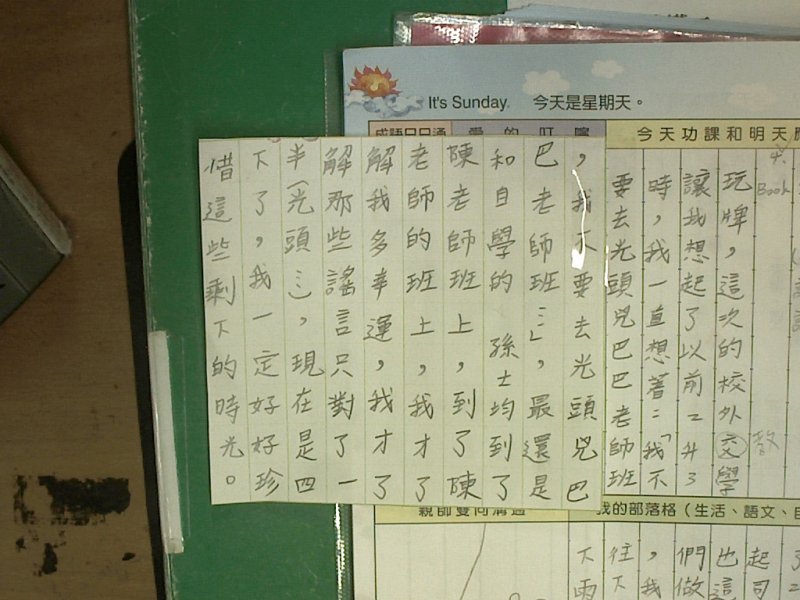 It's Sunday. 今天是星期天。
成語日日通
愛的叮嚀
今天功課和明天應
Book
玩牌，這次的校外交學
讓我想起了以前二升3
時，我一直想著：「我不
要去光頭兇巴巴老師班
，我不要去光頭兇巴
巴老師班…」，最還是
和自學的 孫士均到了
陳老師班上，到了陳
老師的班上，我才了
解我多幸運，我才了
解那些謠言只對了一
半（光頭…），現在是四
下了，我一定好好珍
惜這些剩下的時光。
親師雙向溝通
我的部落格（生活、語文、自
起司
也這
們做
，我
往下
下雨